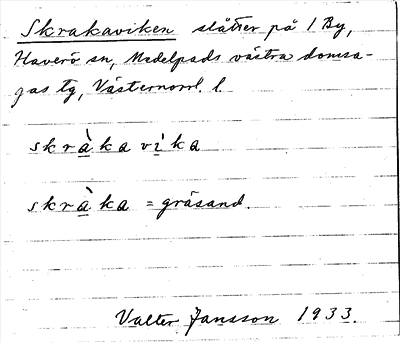 Skrakaviken slåtter på 1 By,
Haverö sn, Medelpads västra domsa-
gas tg, Västernorrl. l.
skràka vìka
skràka = gräsand.
Valter Jansson 1933.